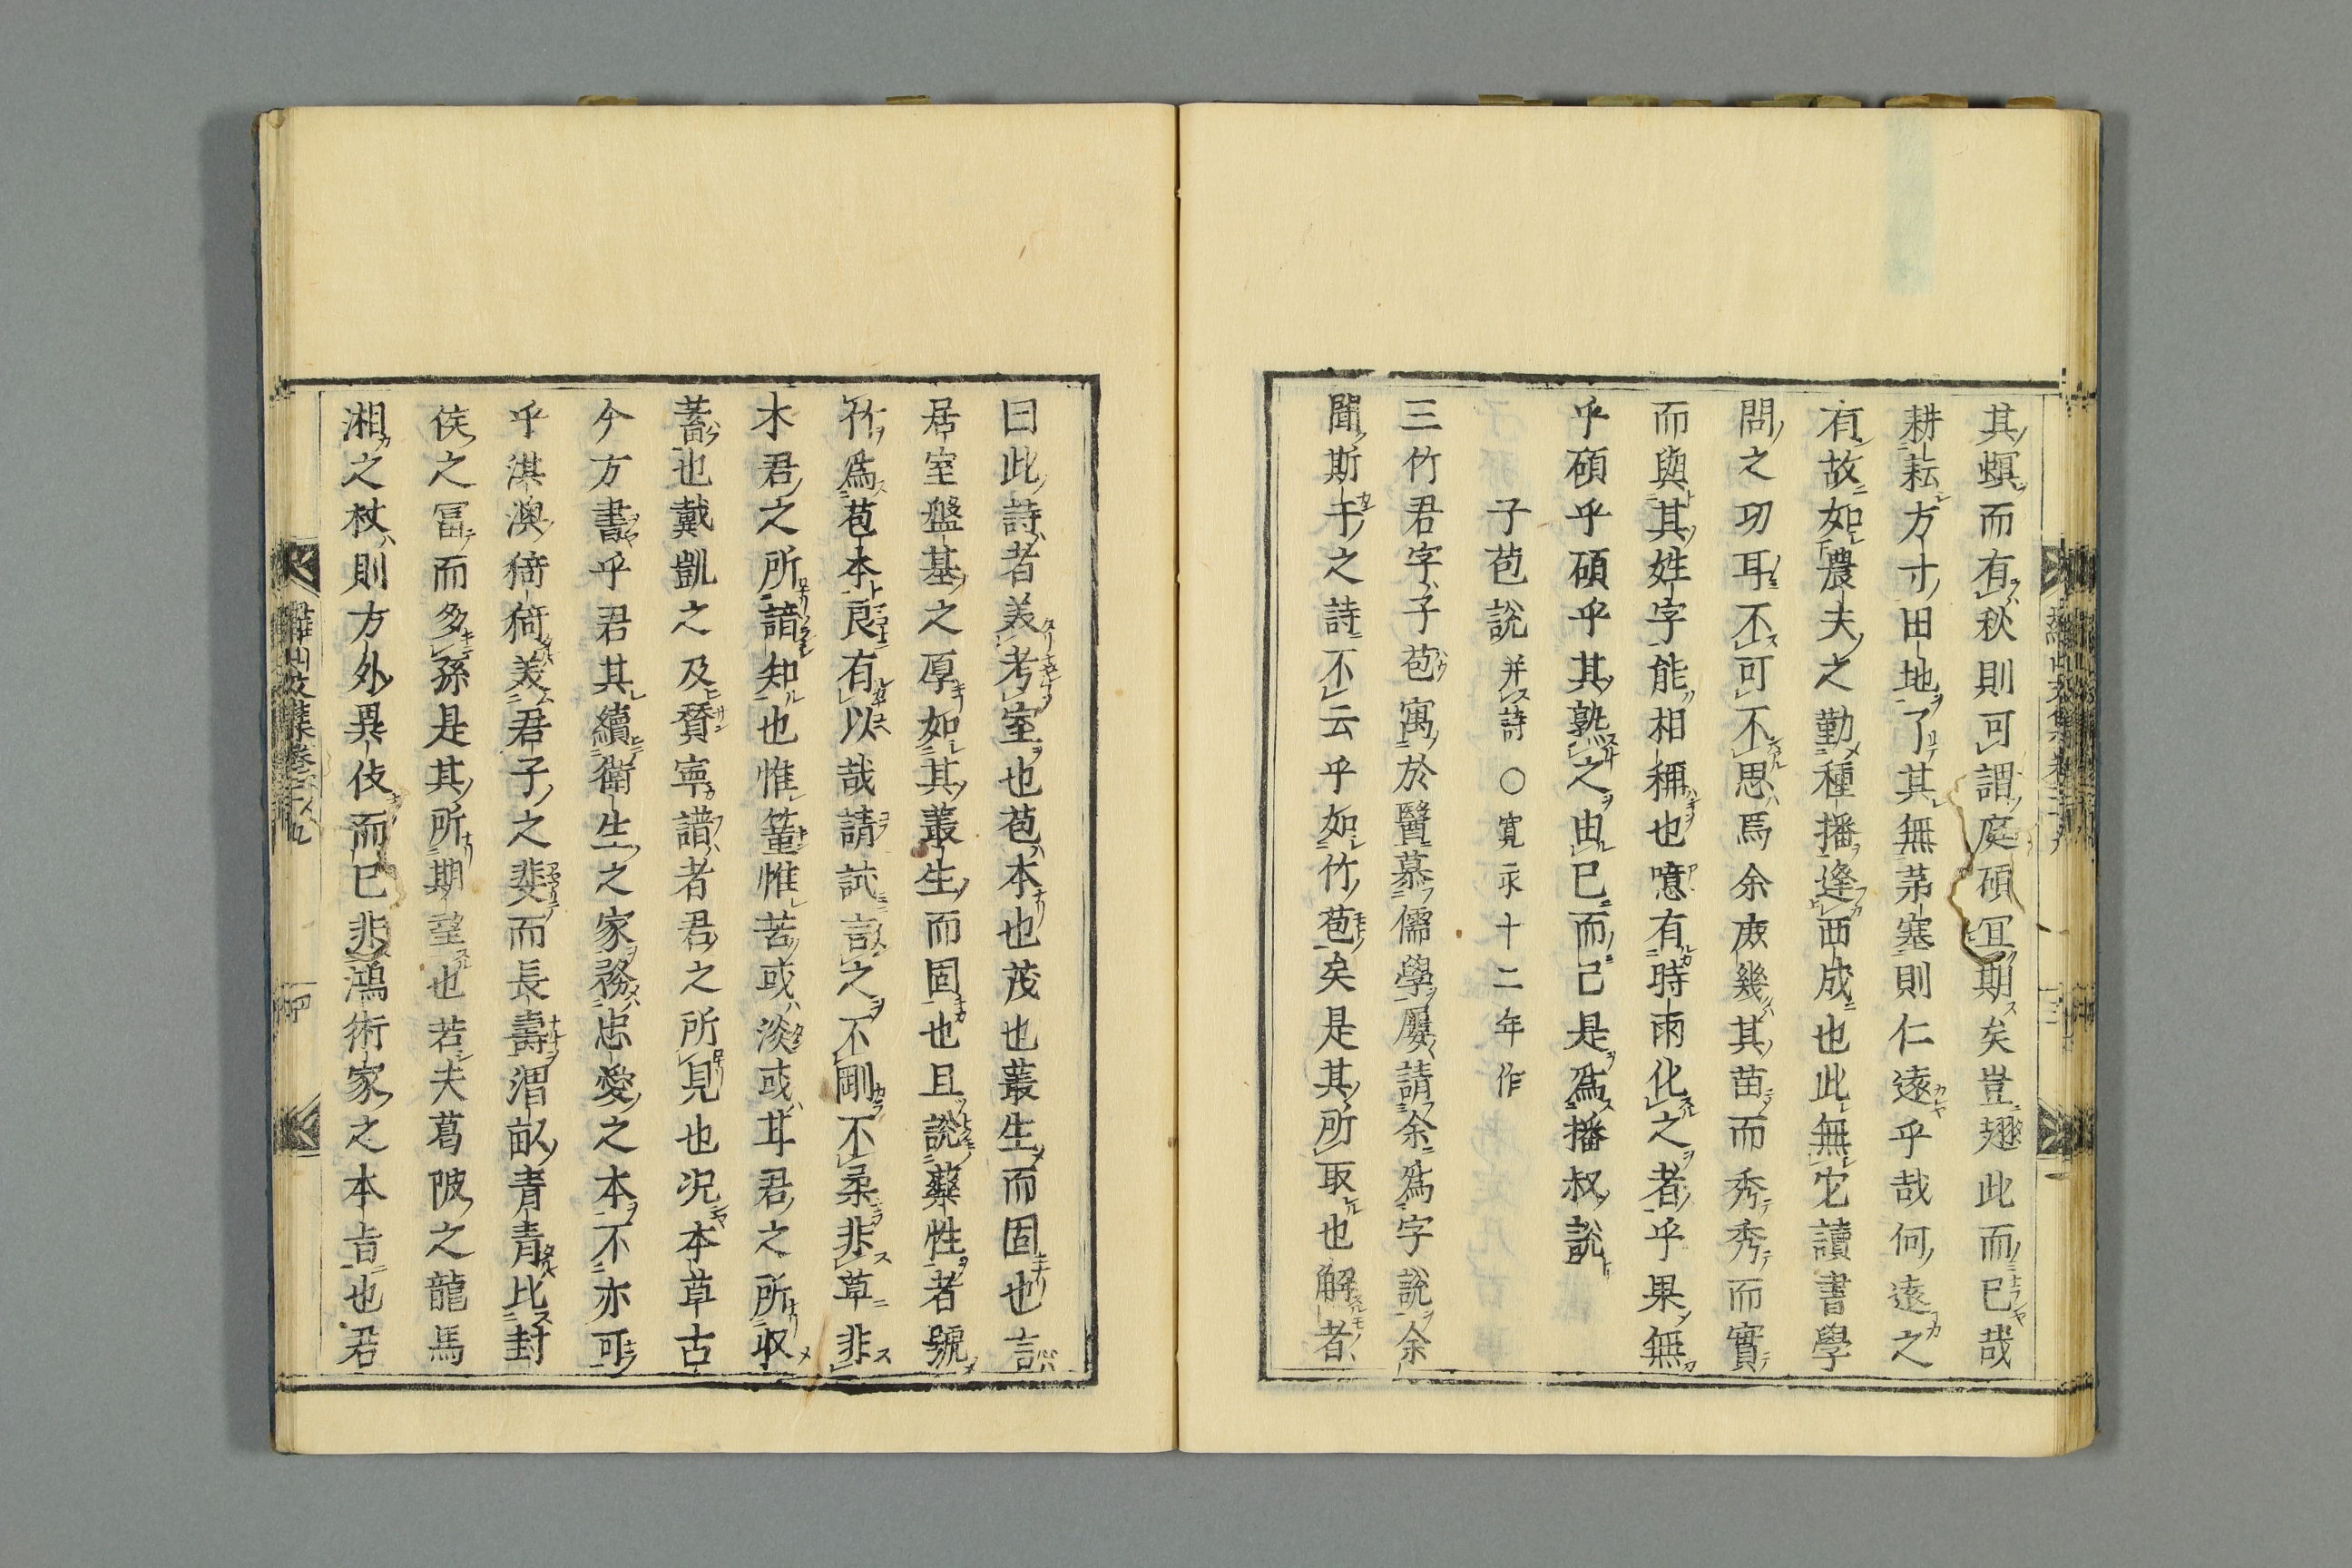 其熯而有秋則可謂庭碩冝期矣豈翅此而已哉
耕耘方寸田地了其無茅塞則仁遠乎哉何遠之
有故如農夫之勤種播逢西成也此無它讀書學
問之功耳不可不思焉余庻幾其苗而秀秀而實
而與其姓字能相稱也噫有時雨化之者乎果無
乎碩乎碩乎其熟之由已而已是爲播叔説
子苞説并詩〇寛永十二年作
三竹君字子苞寓於醫慕儒學屢請余爲字説余
聞斯干之詩不云乎如竹苞矣是其所取也解者
曰此詩者美考室也苞本也茂也叢生而固也言
居室盤基之厚如其叢生而固也且説藥性者號
竹爲苞本良有以哉請試言之不剛不柔非草非
木君之所諳知也惟䈽惟苦或淡或耳君之所収
蓄也戴凱之及賛寧譜者君之所見也况本草古
今方書乎君其續衛生之家務忠愛之本不亦可
乎淇澳猗猗美君子之斐而長壽渭畝青青比封
侯之冨而多孫是其所期望也若夫葛陂之龍馬
湘之杖則方外異伎而已非鴻術家之本旨也君
羅山文集卷三十九